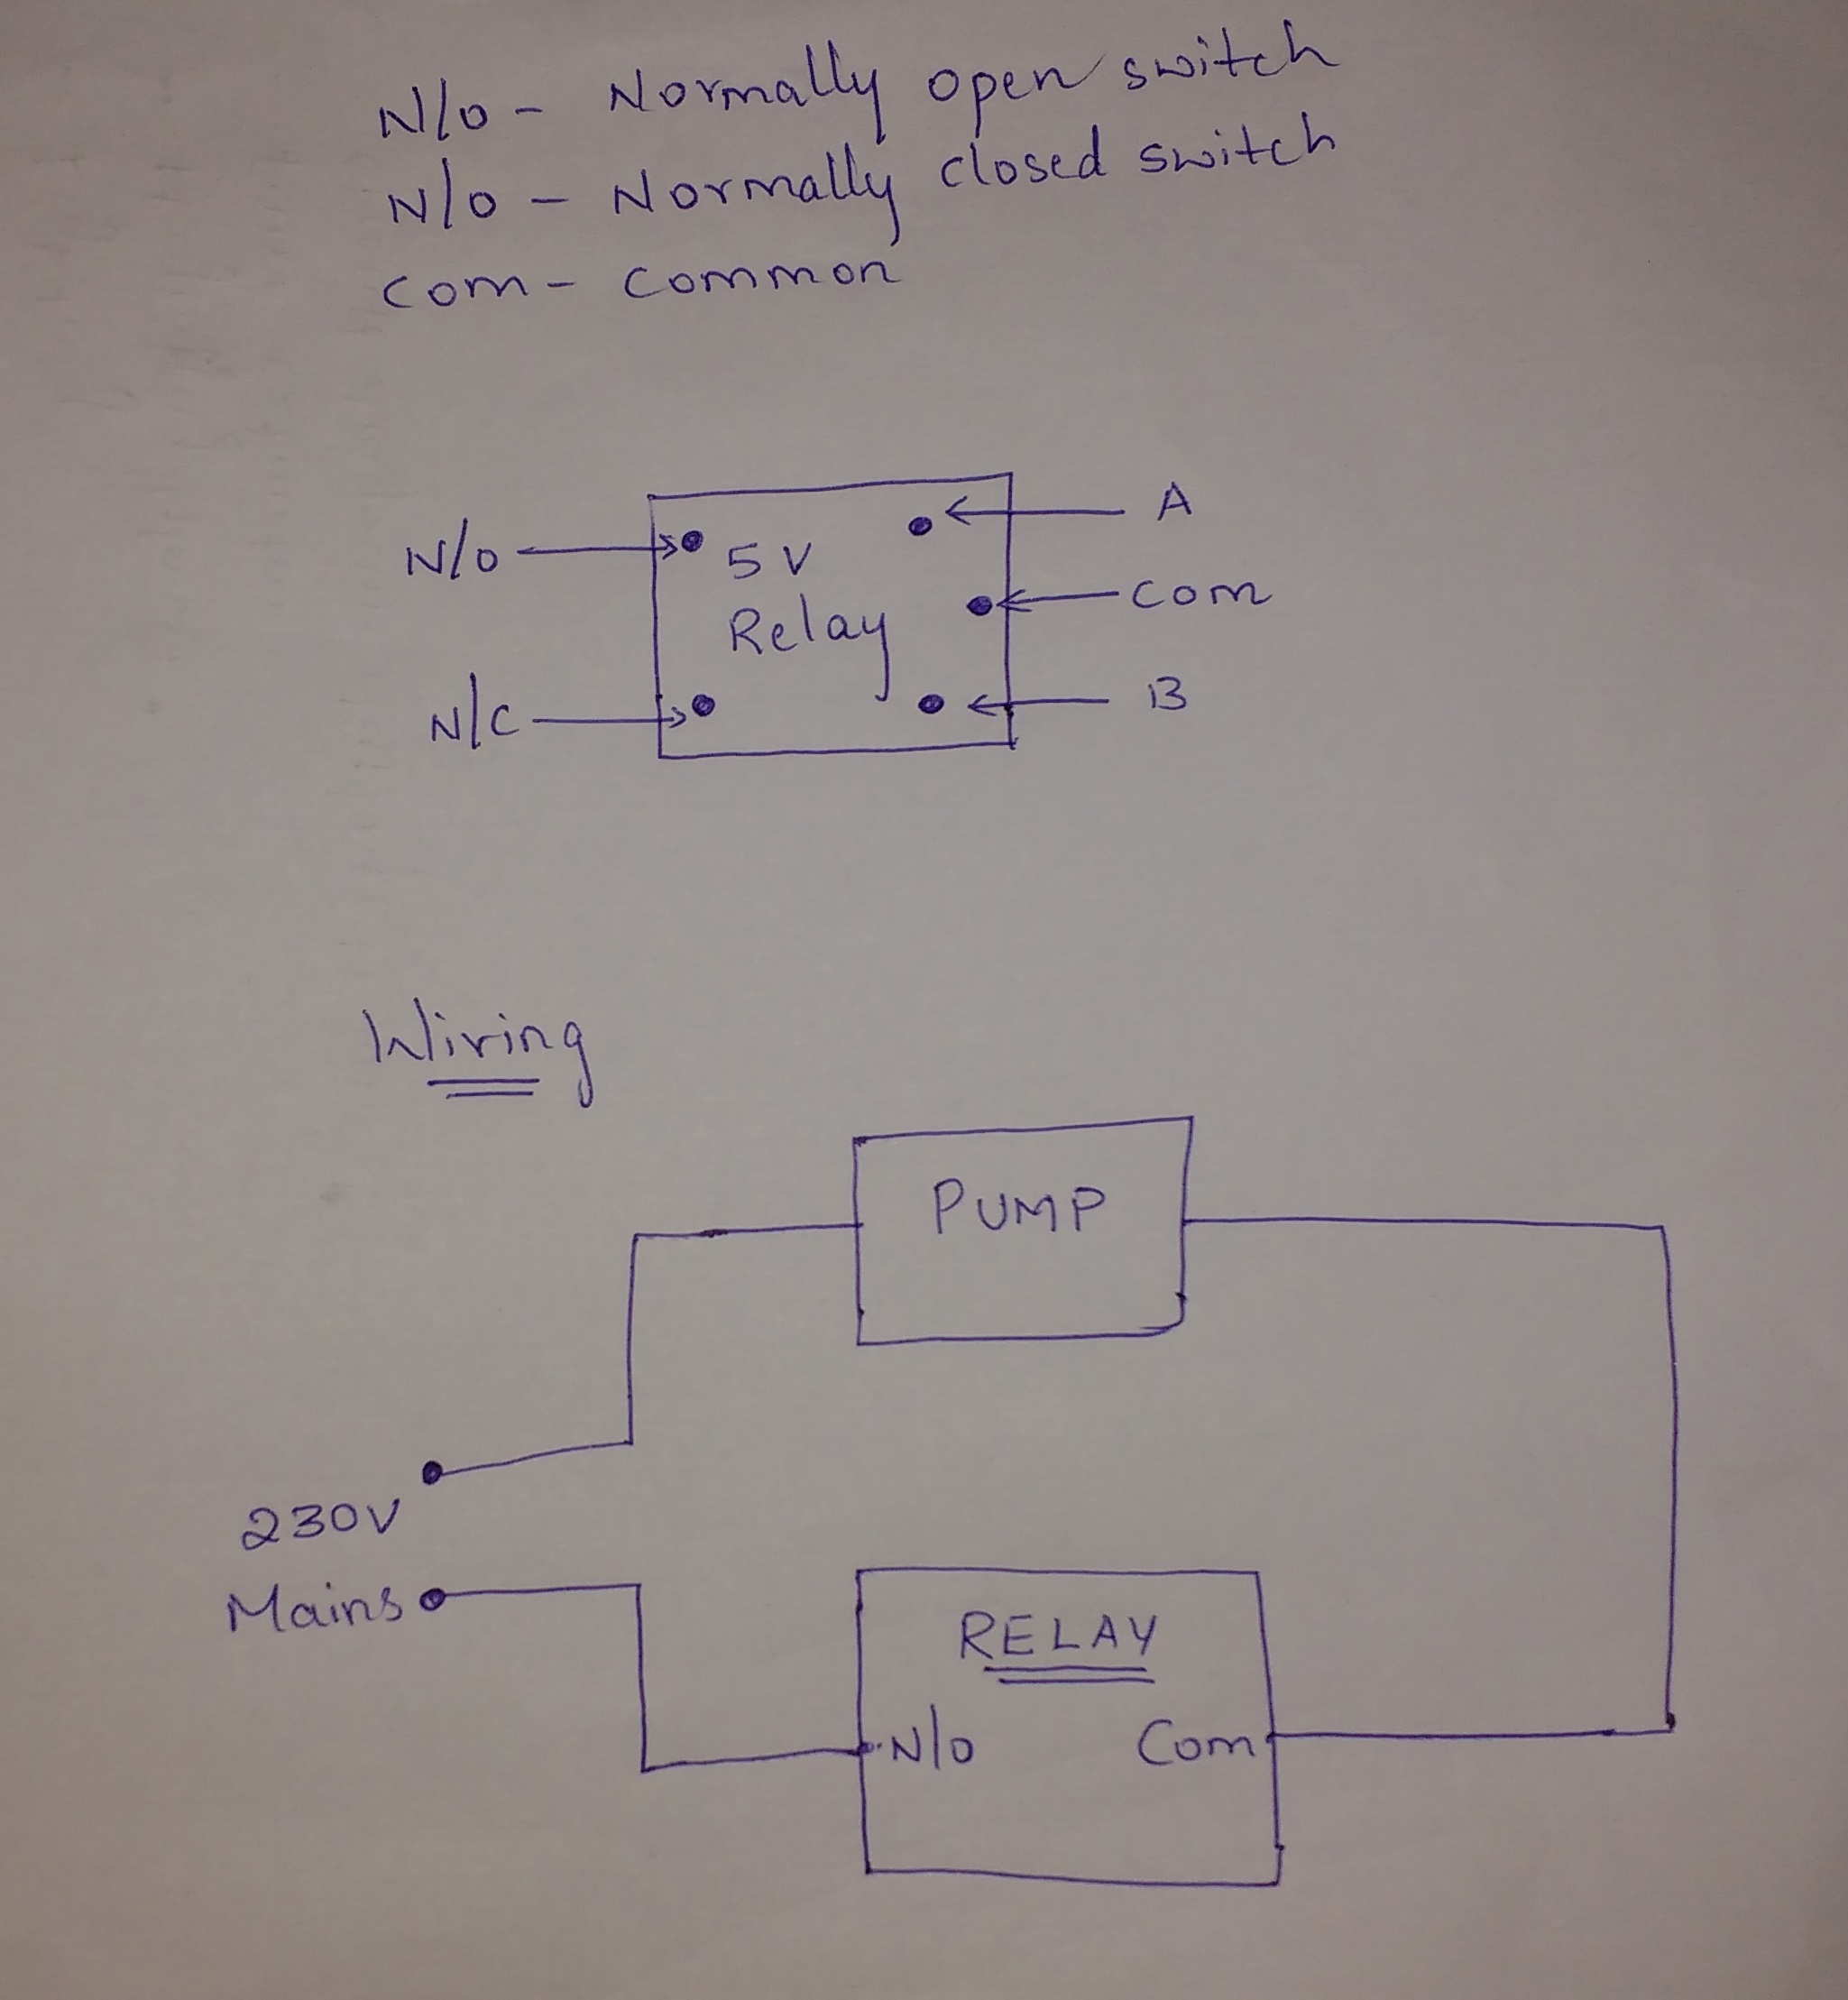 N/O - Normally open switch
N/O - Normally closed switch
Com - Common
A
N/O
5V
Com
Relay
N/C
B
Wiring
PUMP
230V
Mains
RELAY
N/O Com